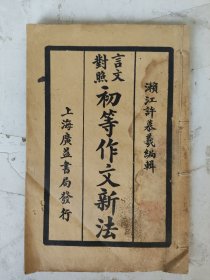 瀨江許慕羲編輯
言文
對照
初等作文新法
上海廣益書局發行